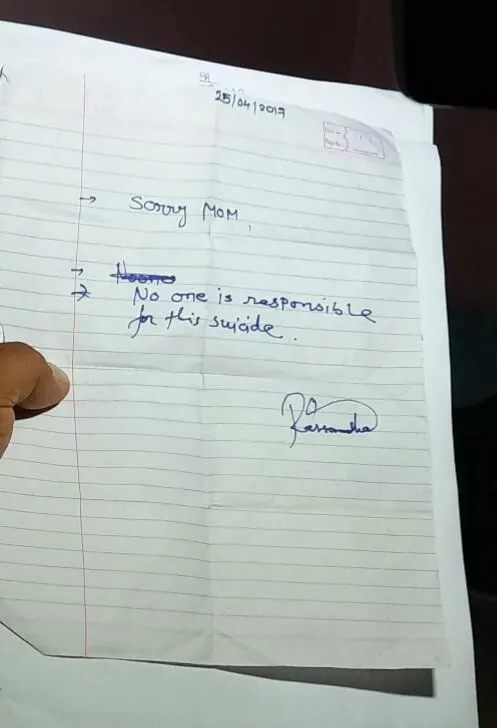 25/04/2017
→ Sorry MOM,
→ Noone
→ No one is responsible
for this suicide.